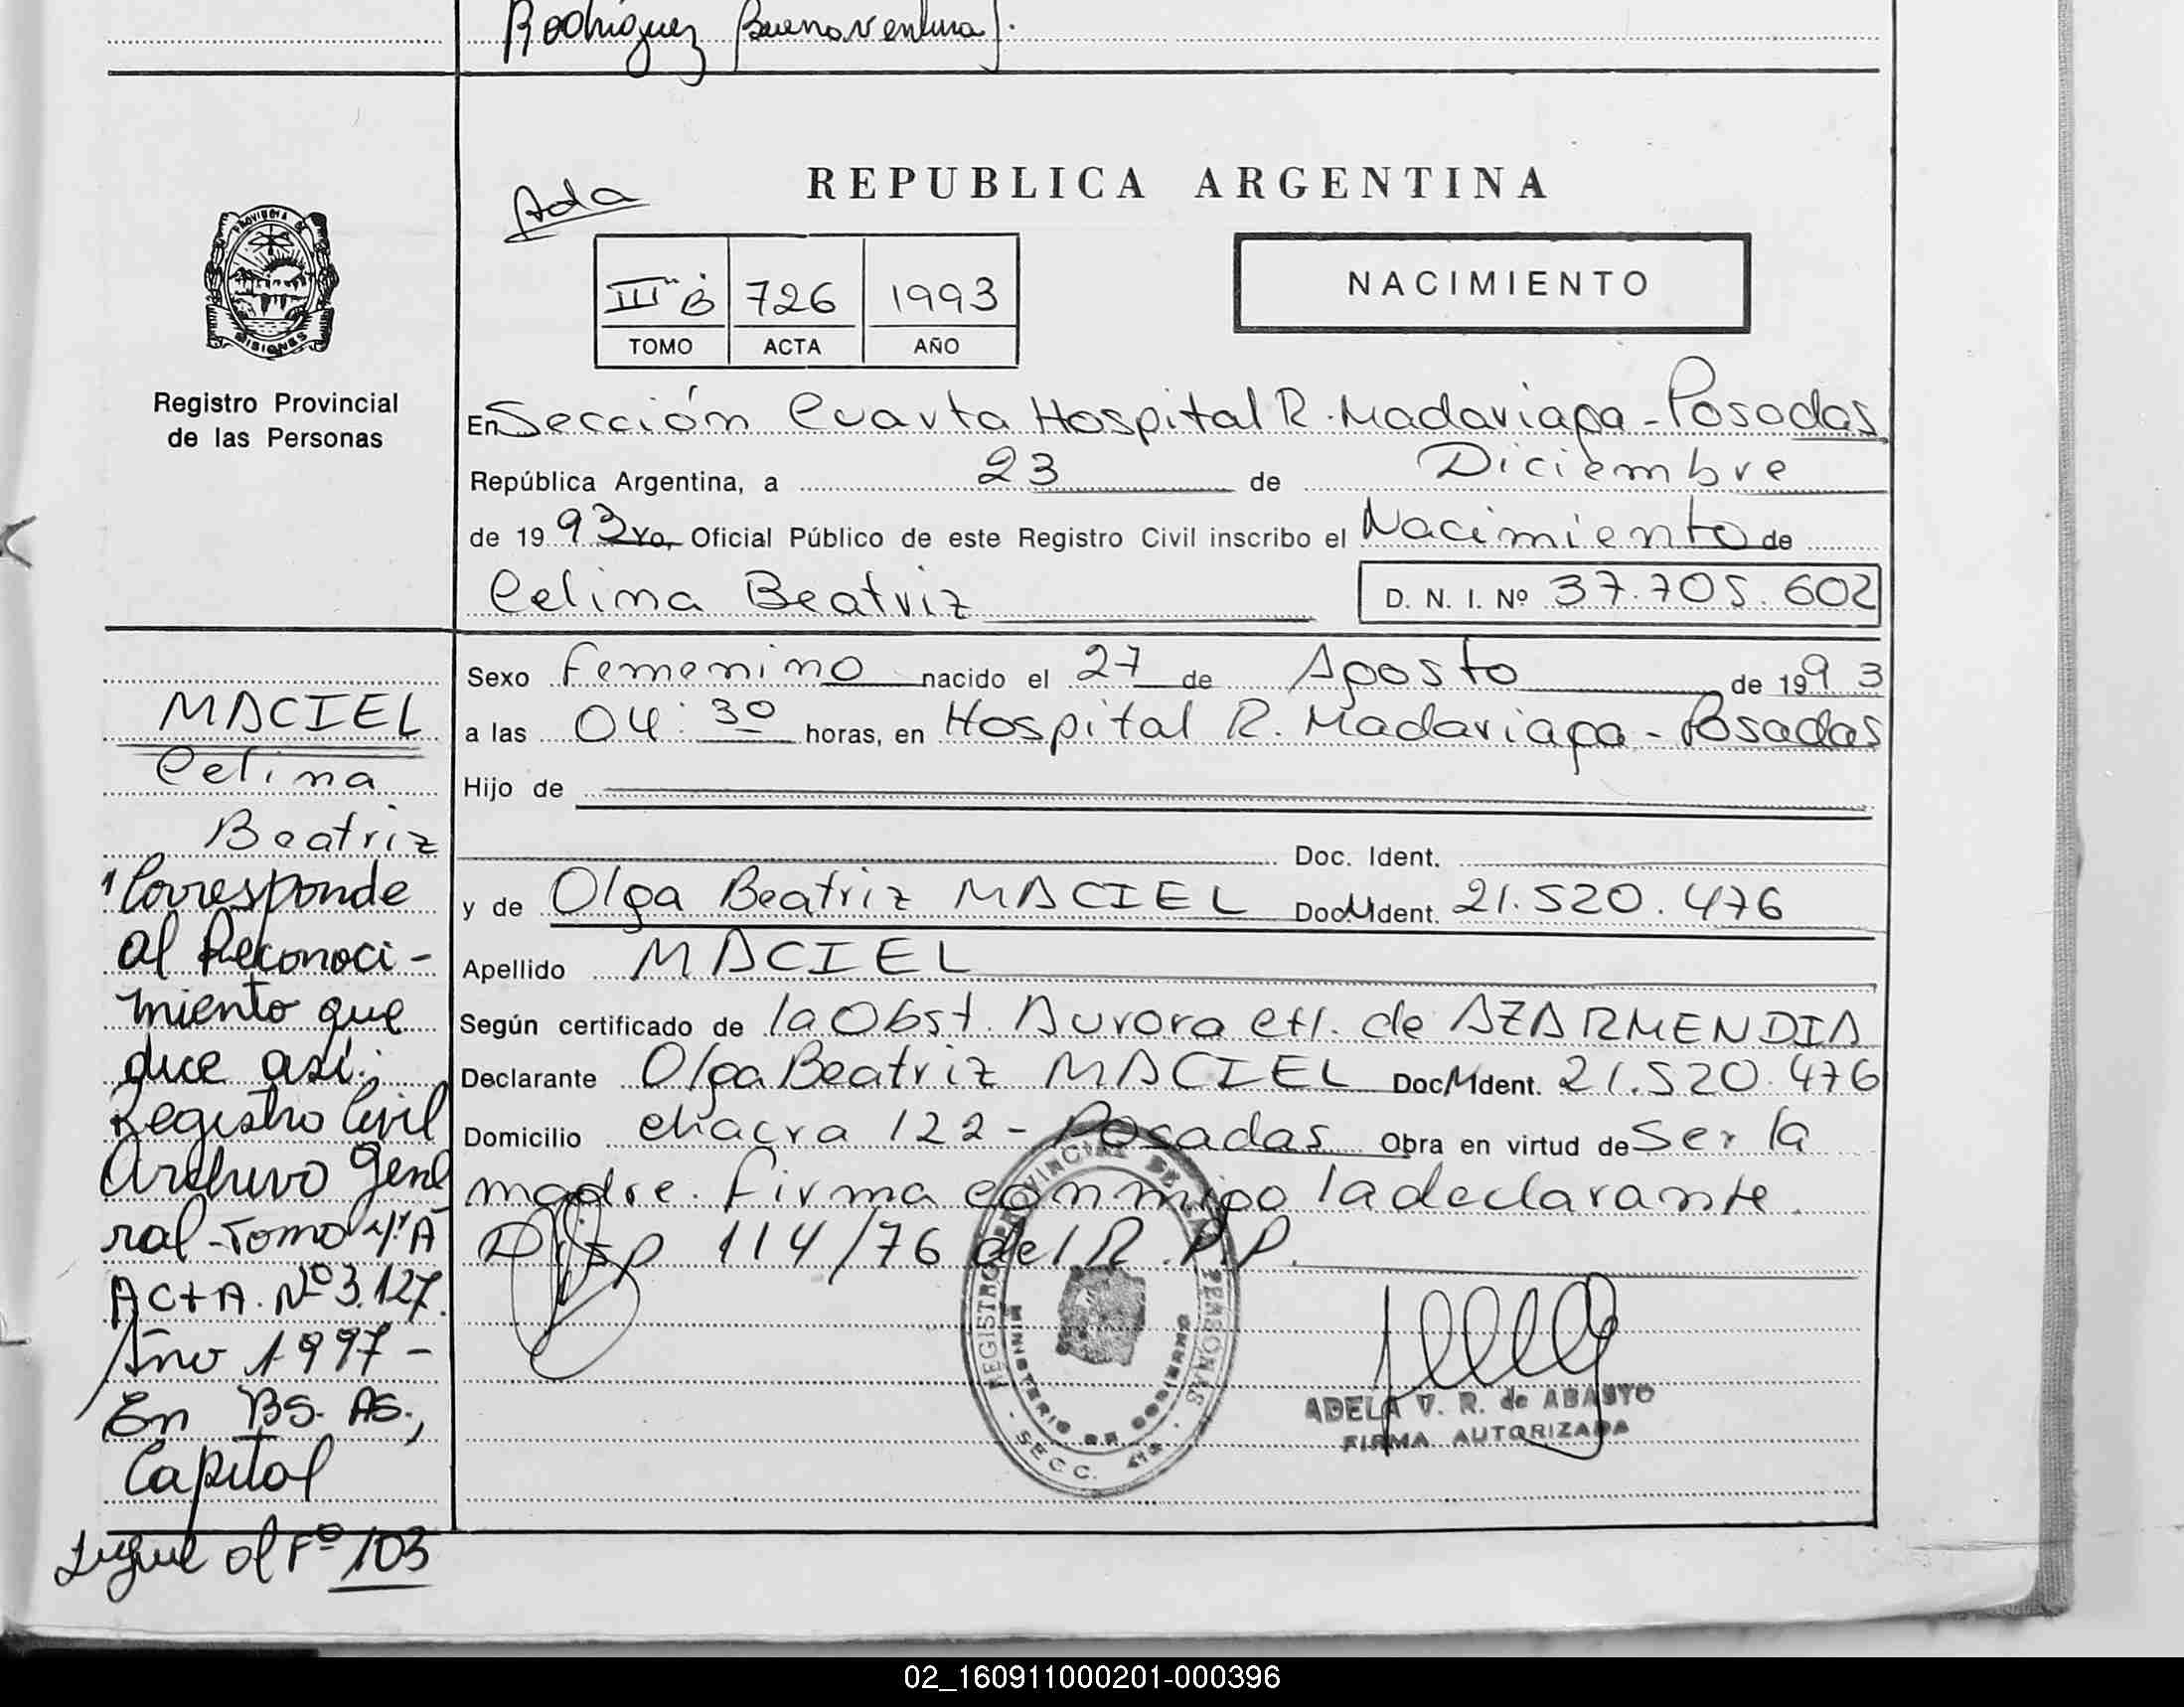 Rodríguez Buenaventura.
REPUBLICA ARGENTINA
Ada
III "B" 726 1993
TOMO ACTA AÑO
NACIMIENTO
PROVINCIA DE
MISIONES
Registro Provincial
de las Personas
En Sección Cuarta Hospital R. Madariaga - Posadas
República Argentina, a 23 de Diciembre
de 1993 Yo, Oficial Público de este Registro Civil inscribo el Nacimiento de
Celina Beatriz D. N. I. Nº 37.705.602
Sexo Femenino nacido el 27 de Agosto de 1993
a las 04:30 horas, en Hospital R. Madariaga - Posadas
Hijo de
Doc. Ident.
y de Olga Beatriz MACIEL Doc. Ident. 21.520.476
Apellido MACIEL
Según certificado de la Obst. Aurora de AZARMENDIA
Declarante Olga Beatriz MACIEL Doc. Ident. 21.520.476
Domicilio chacra 122 - Posadas Obra en virtud de Ser la
madre. Firma conmigo la declarante.
Disp 114/76 del R.P.P.
REGISTRO PROVINCIAL DE LAS PERSONAS
MINISTERIO DE GOBIERNO
SECC. 4ta
ADELA V. R. de ABASTO
FIRMA AUTORIZADA
MACIEL
Celina
Beatriz
Corresponde
al Reconoci-
miento que
dice así:
Registro Civil
Archivo Gene
ral - Tomo 4º A
ACTA. Nº 3.127.
Año 1997 -
En BS. AS.,
Capital
Sigue al Fº 103
02_160911000201-000396